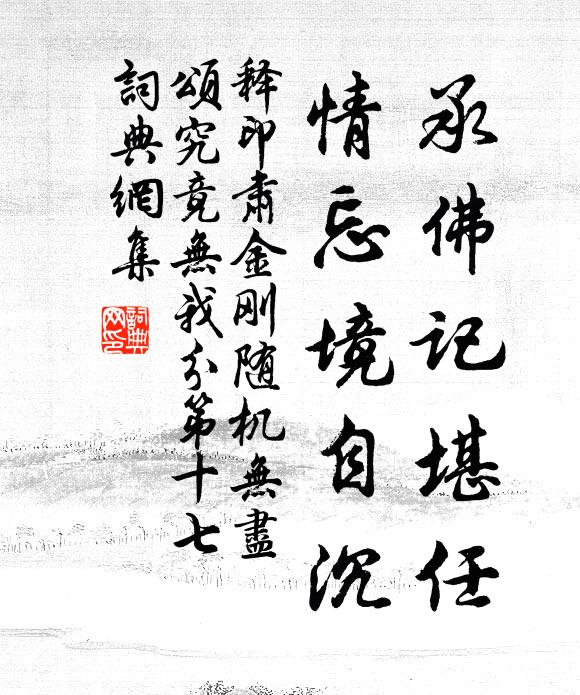 承佛记堪任
情忘境自沉
释印肃金刚随机無盡
頌究竟無我分第十七
詞典網集
詞典网印